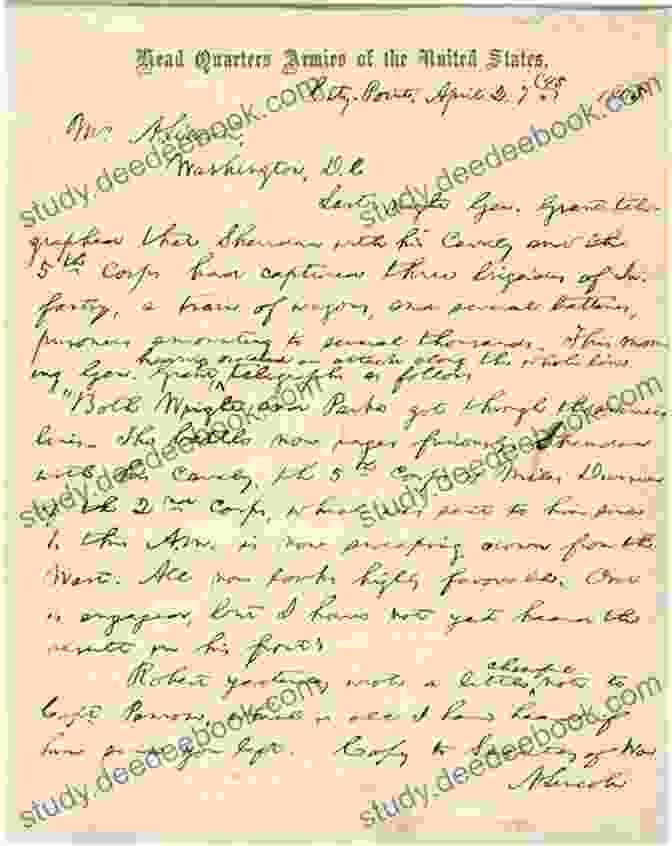 Head Quarters Armies of the United States,
City-Point, April 2. 7/45 1865
Mrs. A. Lincoln,
Washington, D.C.
Last night Gen. Grant tele-
graphed that Sheridan with his Cavalry and the
5th Corps had captured three brigades of In-
fantry, a train of wagons, and several batteries,
prisoners amounting to several thousands. This morn-
having ordered an attack along the whole line
ing Gen. Grant, telegraphs as follows
"Both Wright and Parke got through the enemies
lines. The battle now rages furiously. Sheridan
with his Cavalry, the 5th Corps, & Miles Division
of the 2nd Corps, which was sent to him since
1. this A.M. is now sweeping down from the
West. All now looks highly favorable. Ord
is engaged, but I have not yet heard the
result on his front"
Robert yesterday wrote a little cheerful note to
Capt. Penrose, which is all I have heard of
him since you left. Copy to Secretary of War
A. Lincoln
study.deedeebook.com
study.deedeebook.com
study.deedeebook.com
study.deedeebook.com
study.deedeebook.com
study.deedeebook.com